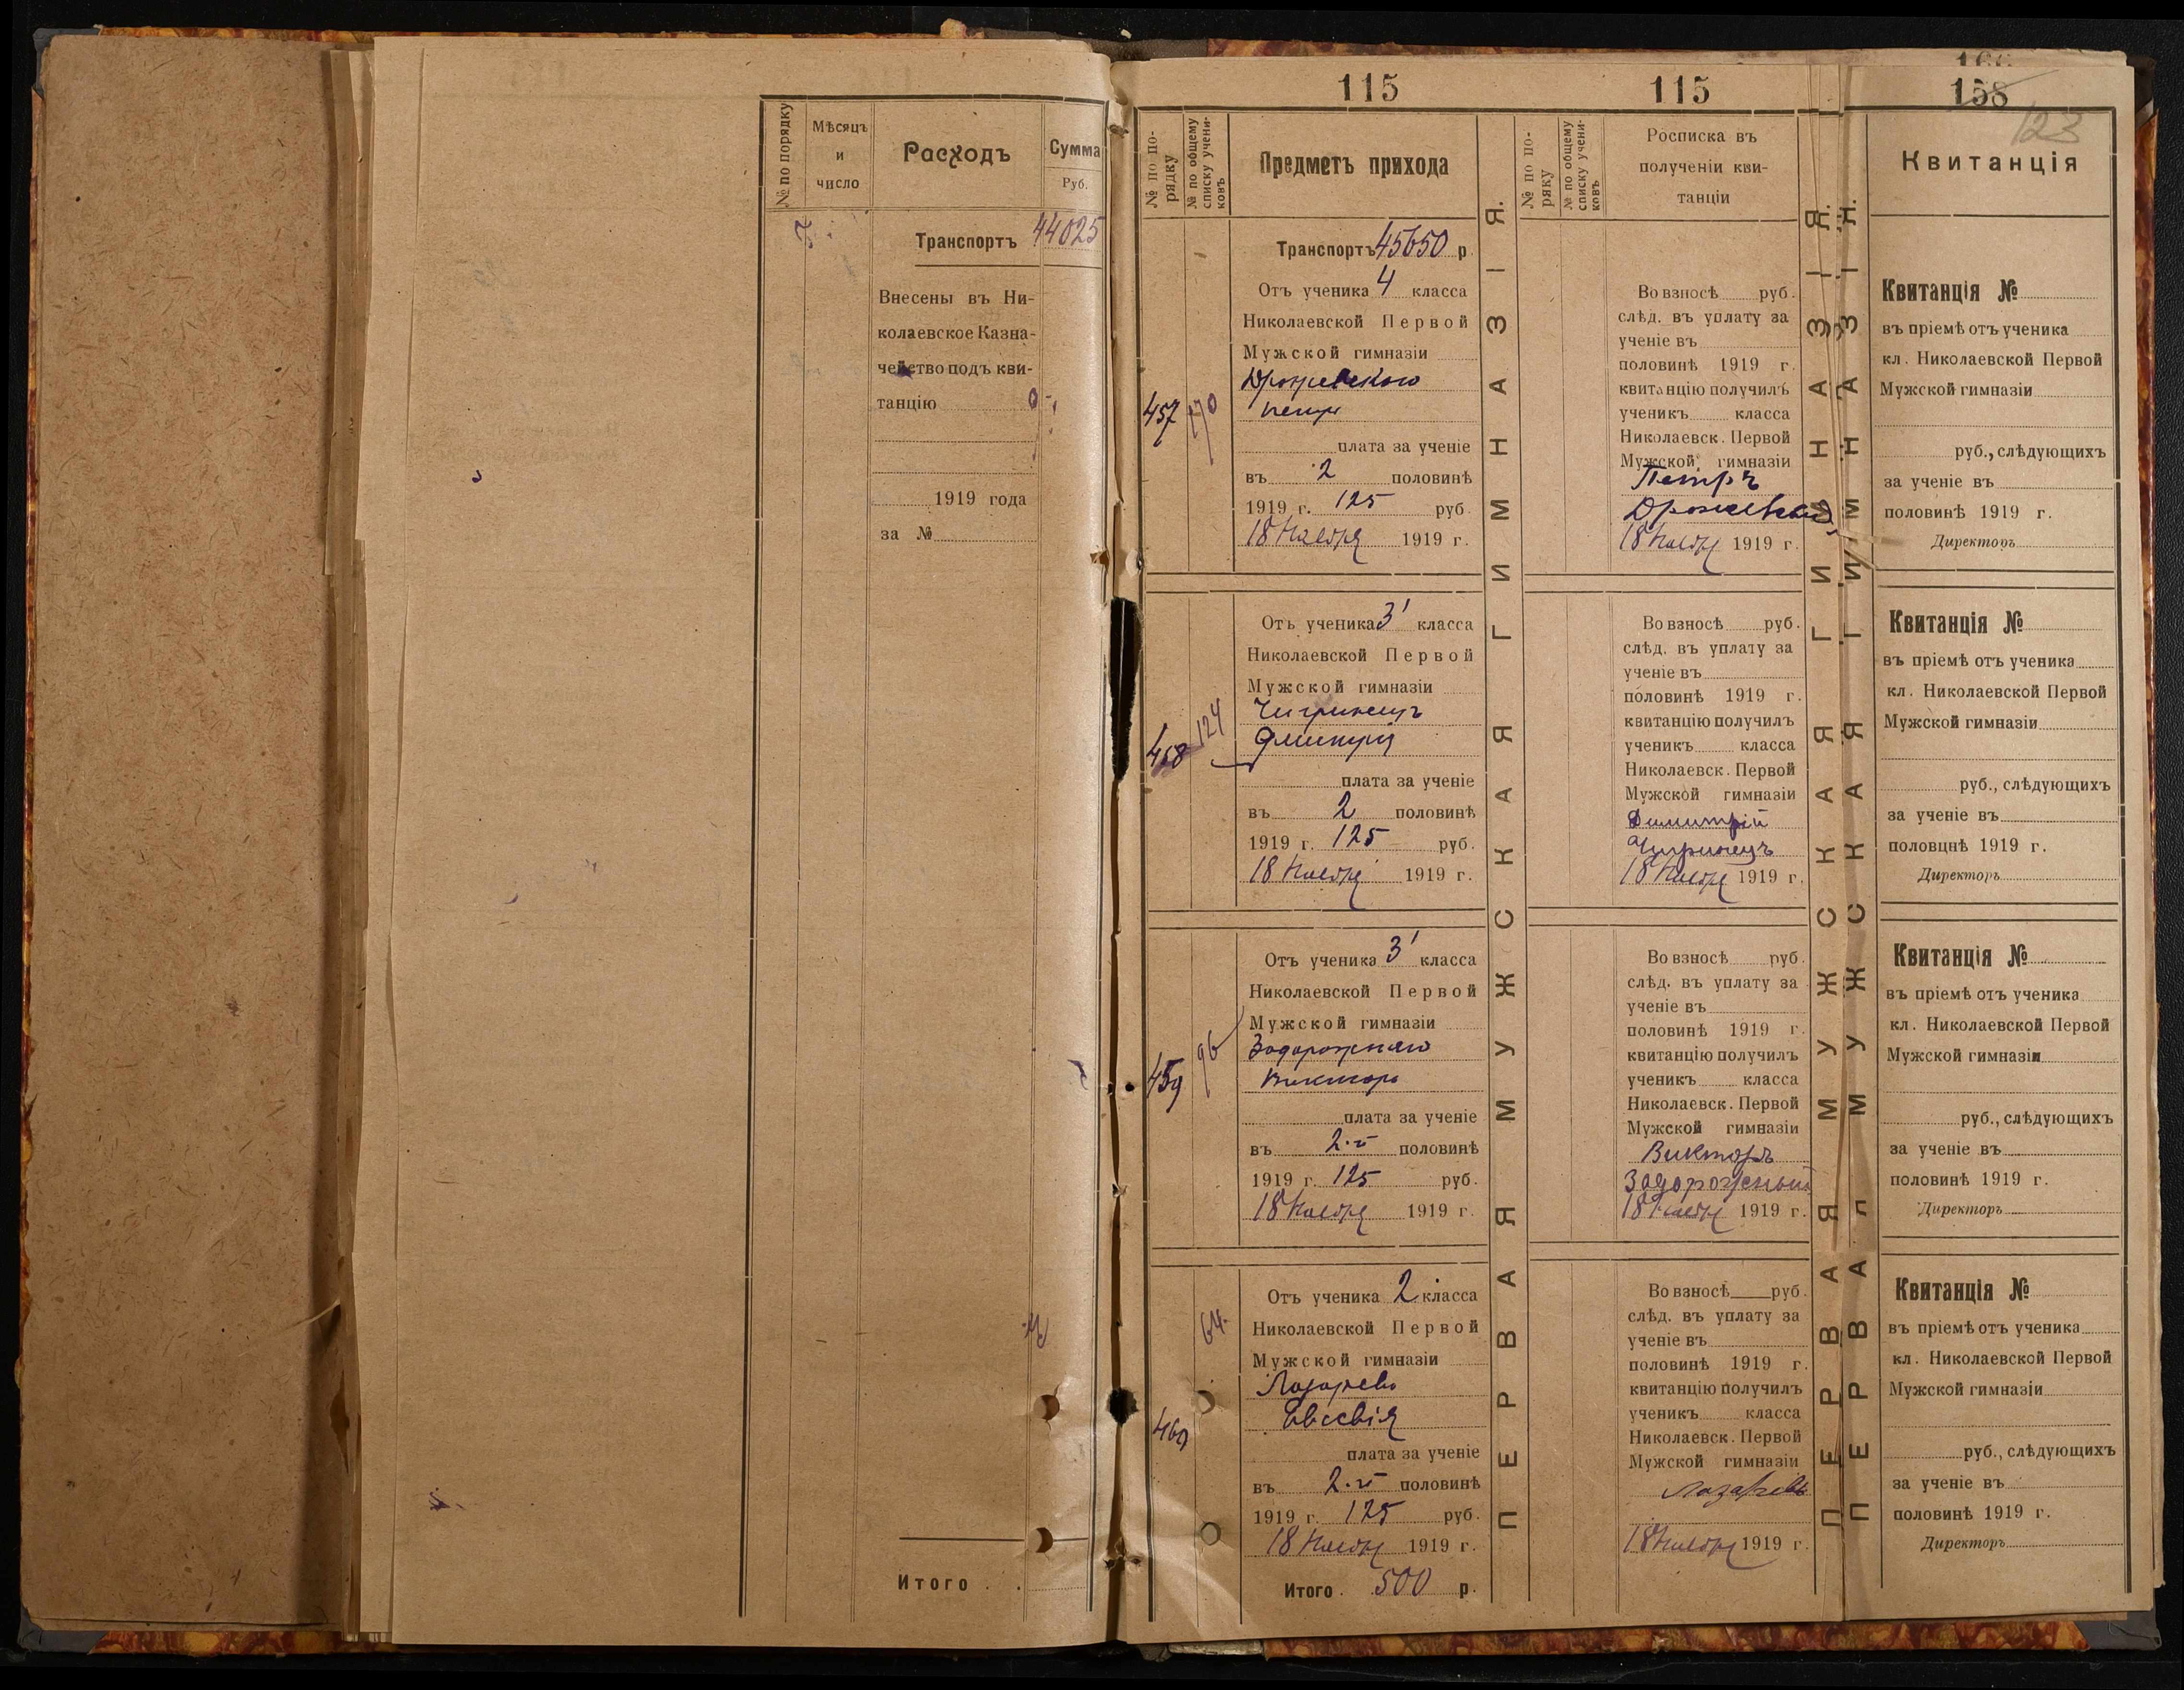 № по порядку
Мѣсяцъ
и
число
Расходъ
Сумма
Руб.
Транспортъ 44025
Внесены въ Ни-
колаевское Казна-
чейство подъ кви-
танцію
1919 года
за №
Итого . .
115
№ по по-
рядку
№ по общему
списку учени-
ковъ
Предметъ прихода
Транспортъ 45650 р.
457
170
Отъ ученика 4 класса
Николаевской Первой
Мужской гимназіи
Петра
плата за ученіе
въ 2 половинѣ
1919 г. 125 руб.
18 Ноября 1919 г.
458
124
Отъ ученика 3' класса
Николаевской Первой
Мужской гимназіи
Чигринецъ
Дмитрія
плата за ученіе
въ 2 половинѣ
1919 г. 125 руб.
18 Ноября 1919 г.
459
96
Отъ ученика 3' класса
Николаевской Первой
Мужской гимназіи
Задорожнаго
Виктора
плата за ученіе
въ 2-й половинѣ
1919 г. 125 руб.
18 Ноября 1919 г.
460
64
Отъ ученика 2 класса
Николаевской Первой
Мужской гимназіи
Лазарева
Евсевія
плата за ученіе
въ 2-й половинѣ
1919 г. 125 руб.
18 Ноября 1919 г.
Итого . 500 р.
ПЕРВАЯ МУЖСКАЯ ГИМНАЗІЯ.
115
№ по по-
ряку
№ по общему
списку учени-
ковъ
Росписка въ
полученіи кви-
танціи
Во взносѣ руб.
слѣд. въ уплату за
ученіе въ
половинѣ 1919 г.
квитанцію получилъ
ученикъ класса
Николаевск. Первой
Мужской гимназіи
Петръ
18 Ноября 1919 г.
Во взносѣ руб.
слѣд. въ уплату за
ученіе въ
половинѣ 1919 г.
квитанцію получилъ
ученикъ класса
Николаевск. Первой
Мужской гимназіи
Димитрій
Чигринецъ
18 Ноября 1919 г.
Во взносѣ руб.
слѣд. въ уплату за
ученіе въ
половинѣ 1919 г.
квитанцію получилъ
ученикъ класса
Николаевск. Первой
Мужской гимназіи
Викторъ
Задорожный
18 Ноября 1919 г.
Во взносѣ руб.
слѣд. въ уплату за
ученіе въ
половинѣ 1919 г.
квитанцію получилъ
ученикъ класса
Николаевск. Первой
Мужской гимназіи
Лазаревъ
18 Ноября 1919 г.
ПЕРВАЯ МУЖСКАЯ ГИМНАЗІЯ.
ПЕРВАЯ МУЖСКАЯ ГИМНАЗІЯ.
166
158
123
Квитанція
Квитанція №
въ пріемѣ отъ ученика
кл. Николаевской Первой
Мужской гимназіи
руб., слѣдующихъ
за ученіе въ
половинѣ 1919 г.
Директоръ
Квитанція №
въ пріемѣ отъ ученика
кл. Николаевской Первой
Мужской гимназіи
руб., слѣдующихъ
за ученіе въ
половцнѣ 1919 г.
Директоръ
Квитанція №
въ пріемѣ отъ ученика
кл. Николаевской Первой
Мужской гимназіи
руб., слѣдующихъ
за ученіе въ
половинѣ 1919 г.
Директоръ
Квитанція №
въ пріемѣ отъ ученика
кл. Николаевской Первой
Мужской гимназіи
руб., слѣдующихъ
за ученіе въ
половинѣ 1919 г.
Директоръ